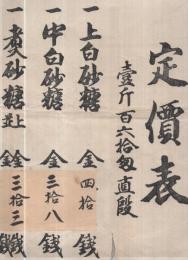 定價表
壹斤百六拾匁直段
一上白砂糖 金四拾錢
一中白砂糖 金三拾八錢
一煑砂糖並上 金三拾三錢